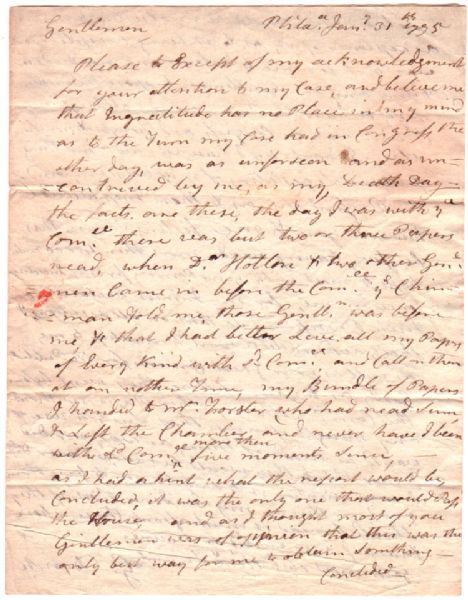 Gentlemen, Phila.ª Jany 31th 1795
Please to Except of my acknowledgment
for your attention to my Case, and believe me
that Ingratitude has no Place in my mind
as to the Turn my Case had in Congress the
other day, was as unforseen and as un-
-contrived by me, as my Death Day—
the facts are these, the day I was with ye
Comee there was but two or three Papers
read, when Dr Holton & two other Gentn
men Came in before the Comee, ye Chair
man told me, those Gentn was before
me, & that I had better Leve all my Papers
of Every Kind with ye Comee and Call on them
at an nother Time, my Bundle of Papers
I handed to Mr Forster who had read Sum,
& Left the Chamber, and never have I been
with ye Comee more then five moments Since,—
as I had a hint what the report would be,
Concluded, it was the only one that would
the House, and as I thought most of you
Gentlemen was of opinion that this was the
only but way for me to obtain Somthing—
Concluded—